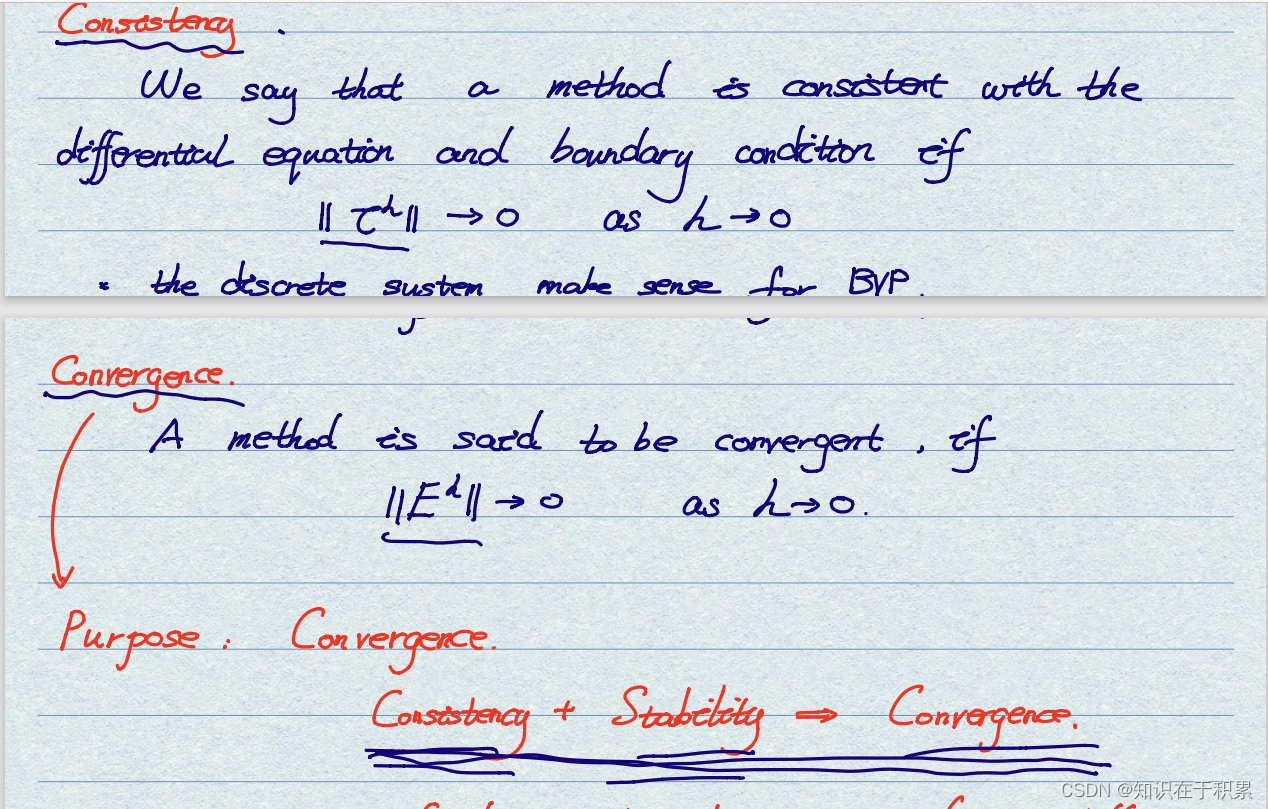 Consistency .
We say that a method is consistent with the
differential equation and boundary condition if
‖ τʰ ‖ → 0 as h → 0
· the discrete system make sense for BVP.
Convergence.
A method is said to be convergent, if
‖Eʰ‖ → 0 as h → 0.
Purpose : Convergence.
Consistency + Stability ⇒ Convergence.
CSDN @知识在于积累